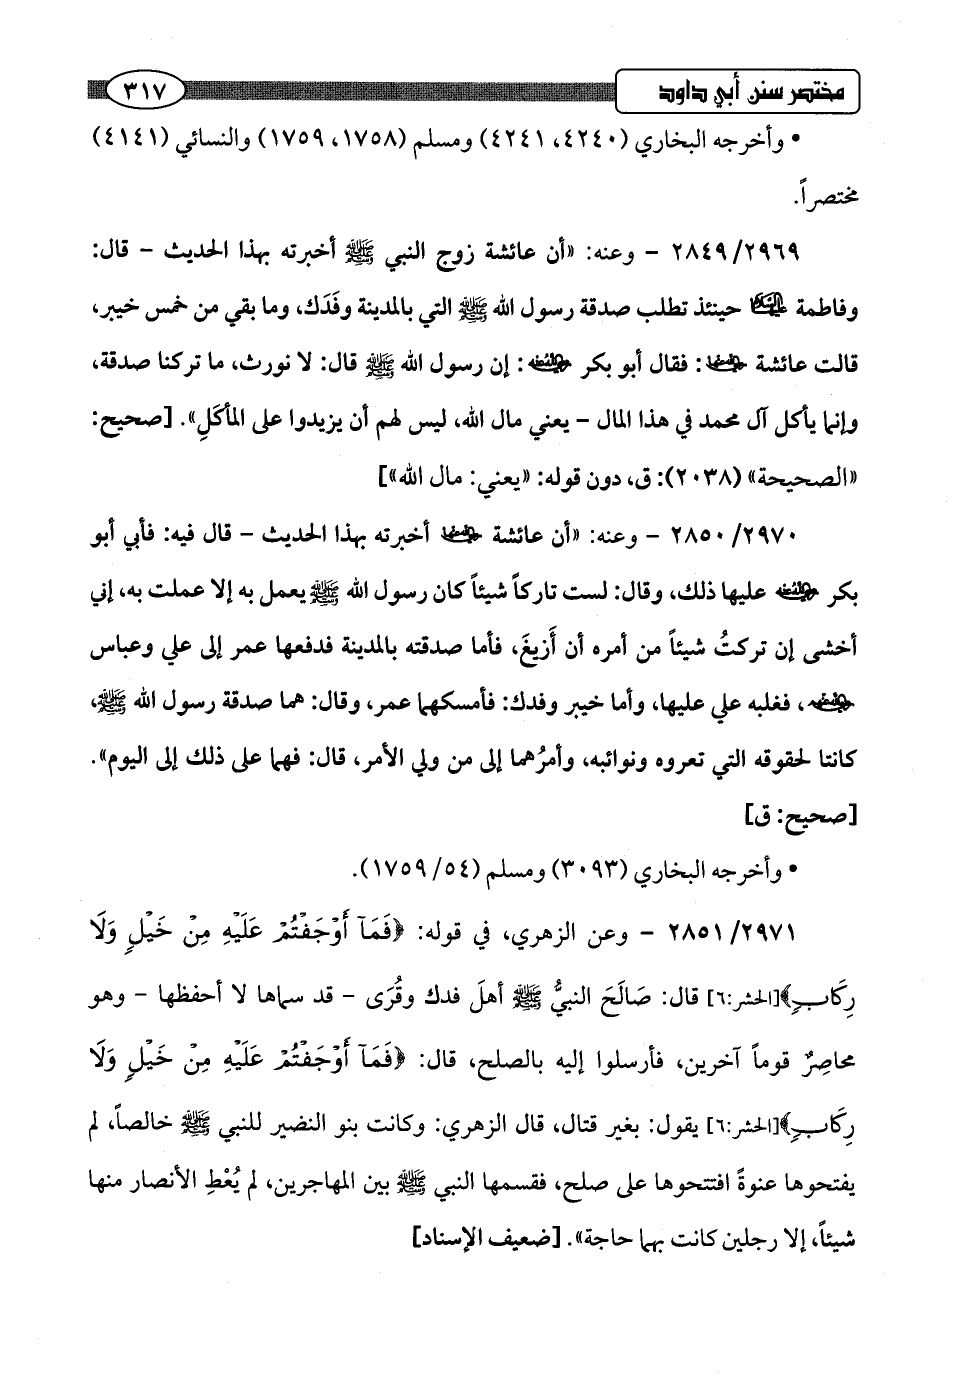 مختصر سنن أبي داود
٣١٧
• وأخرجه البخاري (٤٢٤٠، ٤٢٤١) ومسلم (١٧٥٨، ١٧٥٩) والنسائي (٤١٤١)
مختصراً.
٢٨٤٩/٢٩٦٩ - وعنه: «أن عائشة زوج النبي ﷺ أخبرته بهذا الحديث - قال:
وفاطمة عليها السلام حينئذ تطلب صدقة رسول الله ﷺ التي بالمدينة وفَدَك، وما بقي من خمس خيبر،
قالت عائشة رضي الله عنها: فقال أبو بكر رضي الله عنه: إن رسول الله ﷺ قال: لا نورث، ما تركنا صدقة،
وإنما يأكل آل محمد في هذا المال - يعني مال الله، ليس لهم أن يزيدوا على المأكَلِ». [صحيح:
«الصحيحة» (٢٠٣٨): ق، دون قوله: «يعني: مال الله»]
٢٨٥٠/٢٩٧٠ - وعنه: «أن عائشة رضي الله عنها أخبرته بهذا الحديث - قال فيه: فأبي أبو
بكر رضي الله عنه عليها ذلك، وقال: لست تاركاً شيئاً كان رسول الله ﷺ يعمل به إلا عملت به، إني
أخشى إن تركتُ شيئاً من أمره أن أَزيغَ، فأما صدقته بالمدينة فدفعها عمر إلى علي وعباس
رضي الله عنهما، فغلبه علي عليها، وأما خيبر وفدك: فأمسكهما عمر، وقال: هما صدقة رسول الله ﷺ،
كانتا لحقوقه التي تعروه ونوائبه، وأمرُهما إلى من ولي الأمر، قال: فهما على ذلك إلى اليوم».
[صحيح: ق]
• وأخرجه البخاري (٣٠٩٣) ومسلم (١٧٥٩/٥٤).
٢٨٥١/٢٩٧١ - وعن الزهري، في قوله: ﴿فَمَآ أَوْجَفْتُمْ عَلَيْهِ مِنْ خَيْلٍ وَلَا
رِكَابٍ﴾[الحشر:٦] قال: صَالَحَ النبيُّ ﷺ أهلَ فدك وقُرَى - قد سماها لا أحفظها - وهو
محاصِرٌ قوماً آخرين، فأرسلوا إليه بالصلح، قال: ﴿فَمَآ أَوْجَفْتُمْ عَلَيْهِ مِنْ خَيْلٍ وَلَا
رِكَابٍ﴾[الحشر:٦] يقول: بغير قتال، قال الزهري: وكانت بنو النضير للنبي ﷺ خالصاً، لم
يفتحوها عنوةً افتتحوها على صلح، فقسمها النبي ﷺ بين المهاجرين، لم يُعْطِ الأنصار منها
شيئاً، إلا رجلين كانت بهما حاجة». [ضعيف الإسناد]